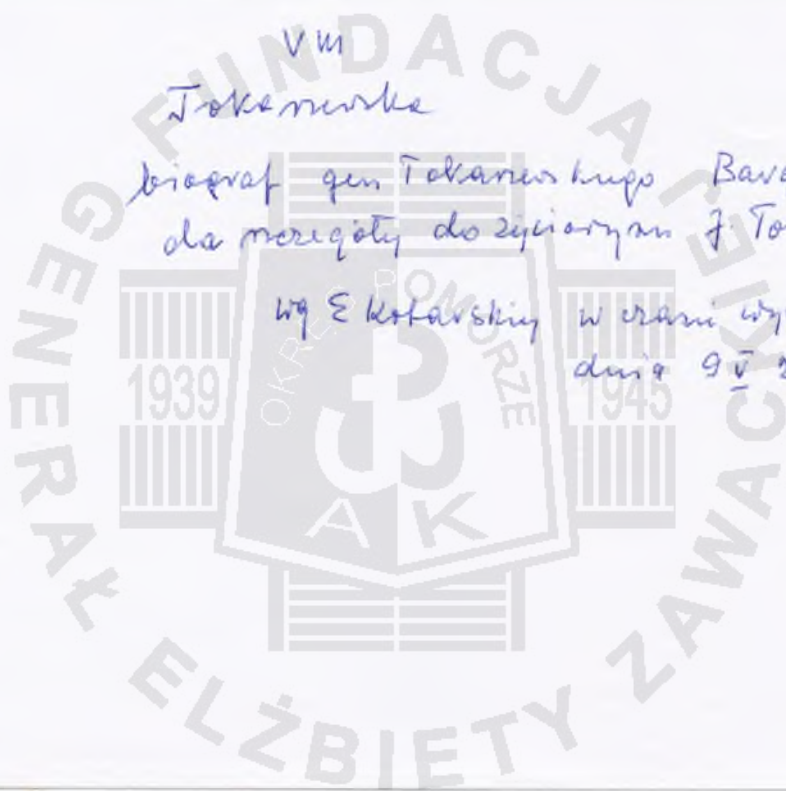 VM
Tokarzewska
biograf gen Tokarzewskiego
da szczegóły do życiorysu J. To
wg E Kotarskiej w czasie
dnia 9 V
FUNDACJA GENERAŁ ELŻBIETY ZAWACKIEJ
OKRĘG POMORZE
1939
1945
AK